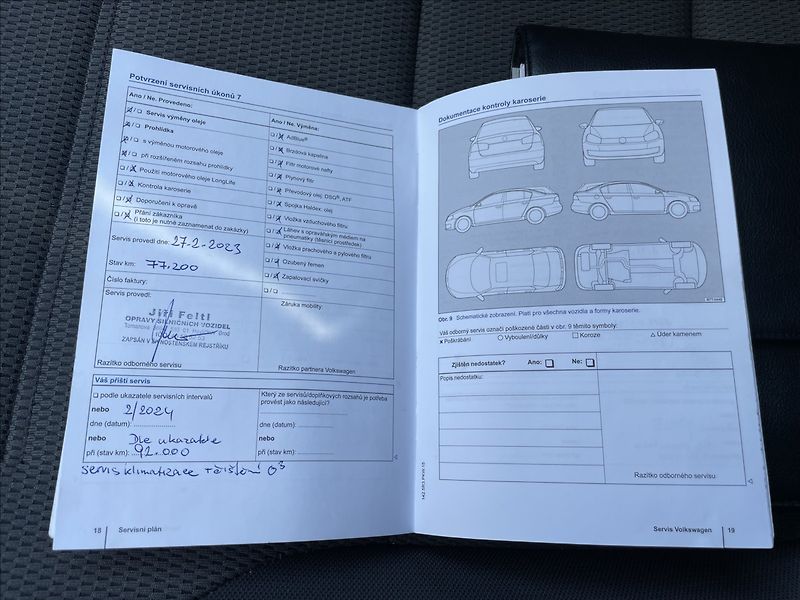 Potvrzení servisních úkonů 7
Ano / Ne. Provedeno:
Servis výměny oleje
Prohlídka
s výměnou motorového oleje
při rozšířeném rozsahu prohlídky
Použití motorového oleje LongLife
Kontrola karoserie
Doporučení k opravě
Přání zákazníka
(i toto je nutné zaznamenat do zakázky)
Servis provedl dne: 27.2.2023
Stav km: 77.200
Číslo faktury:
Servis provedl:
Jiří Feltl
OPRAVY SILNIČNÍCH VOZIDEL
ZAPSÁN V ŽIVNOSTENSKÉM REJSTŘÍKU
Razítko odborného servisu
Ano / Ne. Výměna:
AdBlue®
Brzdová kapalina
Filtr motorové nafty
Plynový filtr
Převodový olej: DSG®, ATF
Spojka Haldex: olej
Vložka vzduchového filtru
Láhev s opravářským médiem na
pneumatiky (těsnicí prostředek)
Vložka prachového a pylového filtru
Ozubený řemen
Zapalovací svíčky
Záruka mobility:
Razítko partnera Volkswagen
Váš příští servis
podle ukazatele servisních intervalů
nebo 2/2024
dne (datum):
nebo Dle ukazatele
při (stav km): 92.000
Který ze servisů/doplňkových rozsahů je potřeba
provést jako následující?
dne (datum):
nebo
při (stav km):
servis klimatizace + čištění O3
18 Servisní plán
Dokumentace kontroly karoserie
Obr. 9 Schematické zobrazení. Platí pro všechna vozidla a formy karoserie.
Váš odborný servis označí poškozené části v obr. 9 těmito symboly:
x Poškrábání O Vyboulení/důlky □ Koroze △ Úder kamenem
Zjištěn nedostatek? Ano: Ne:
Popis nedostatku:
Razítko odborného servisu
Servis Volkswagen 19